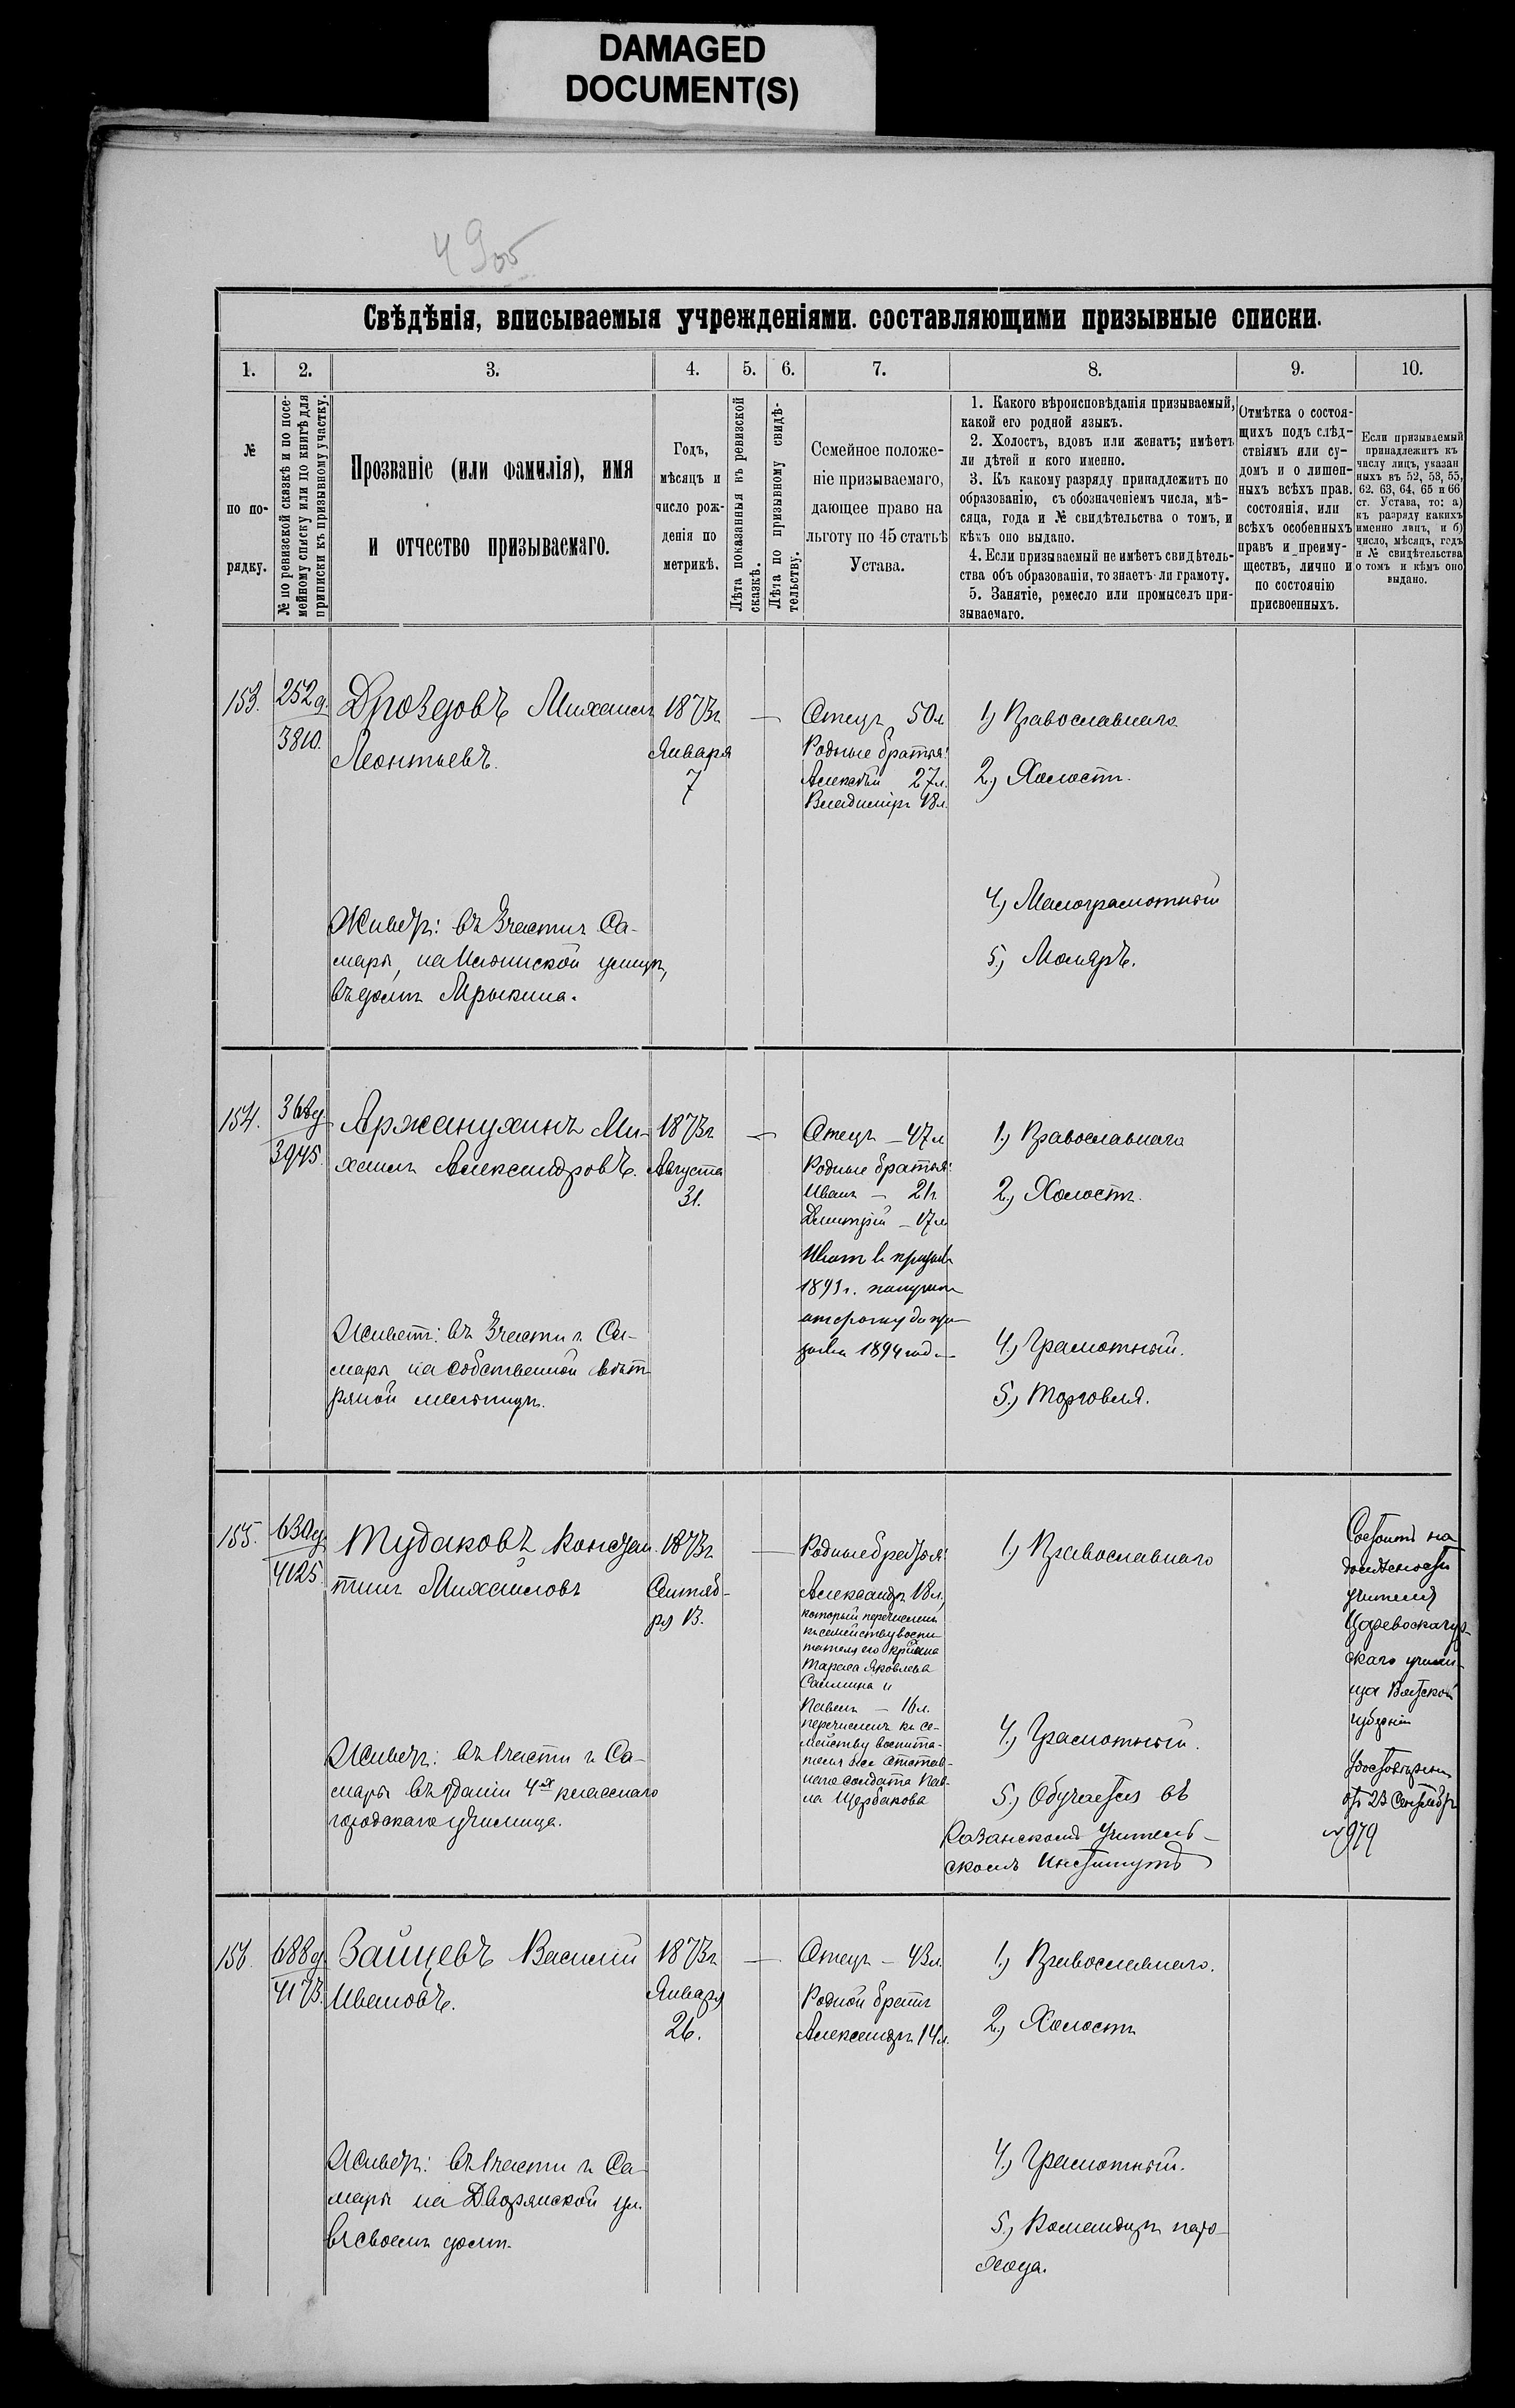 DAMAGED
DOCUMENT(S)
49об
Свѣдѣнія, вписываемыя учрежденіями. составляющими призывные списки.
1. 2. 3. 4. 5. 6. 7. 8. 9. 10.
№
по по-
рядку.
№ по ревизской сказкѣ и по посе-
мейному списку или по книгѣ для
приписки къ призывному участку.
Прозваніе (или фамилія), имя
и отчество призываемаго.
Годъ,
мѣсяцъ и
число рож-
денія по
метрикѣ.
Лѣта показанныя къ ревизской
сказкѣ.
Лѣта по призывному свидѣ-
тельству.
Семейное положе-
ніе призываемаго,
дающее право на
льготу по 45 статьѣ
Устава.
1. Какого вѣроисповѣданія призываемый,
какой его родной языкъ.
2. Холостъ, вдовъ или женатъ; имѣетъ
ли дѣтей и кого именно.
3. Къ какому разряду принадлежитъ по
образованію, съ обозначеніемъ числа, мѣ-
сяца, года и № свидѣтельства о томъ, и
кѣмъ оно выдано.
4. Если призываемый не имѣетъ свидѣтель-
ства объ образованіи, то знаетъ-ли грамоту.
5. Занятіе, ремесло или промыселъ при-
зываемаго.
Отмѣтка о состоя-
щихъ подъ слѣд-
ствіямъ или су-
домъ и о лишен-
ныхъ всѣхъ прав.
состоянія, или
всѣхъ особенныхъ
правъ и преиму-
ществъ, лично и
по состоянію
присвоенныхъ.
Если призываемый
принадлежитъ къ
числу лицъ, указан
ныхъ въ 52, 53, 55,
62. 63, 64, 65 и 66
ст. Устава, то: а)
къ разряду какихъ
именно лицъ, и б)
число, мѣсяцъ, годъ
и № свидѣтельства
о томъ и кѣмъ оно
выдано.
153.
252 д.
3810.
Дроздовъ Михаилъ
Леонтьевъ.
Живетъ: въ 3 части г. Са-
мары, на Ильинской улицѣ,
въ домѣ Мрыкина.
1873 г
Января
7
—
Отецъ 50 л
Родные братья:
Алексѣй 27 л.
Владиміръ 18 л.
1) Православнаго
2.) Холостъ.
4.) Малограмотный
5.) Маляръ.
154.
368 д.
3945.
Аржанухинъ Ми-
хаилъ Александровъ.
Живетъ: въ 3 части г. Са-
мары на собственной вѣт-
ряной мельницѣ.
1873 г
Августа
31.
—
Отецъ — 47 л
Родные братья:
Иванъ — 21 г.
Дмитрій — 17 л
Иванъ въ призывъ
1893 г. получилъ
отсрочку до при-
зыва 1894 года
1.) Православнаго
2.) Холостъ.
4.) Грамотный.
5.) Торговля.
155.
630 д.
4125.
Тудаковъ Констан-
тинъ Михайловъ
Живетъ: въ 1 части г. Са-
мары въ зданіи 4х класснаго
городскаго училища.
1873 г
Сентяб-
ря 13.
—
Родные братья:
Александръ 18 л.,
который перечисленъ
къ семейству воспи-
тателя его
Яковлева
и
Павелъ — 16 л.
перечисленъ къ се-
мейству воспита-
теля же отстав-
наго солдата Пав-
ла Щербакова
1.) Православнаго
4.) Грамотный.
5.) Обучается въ
Казанскомъ Учитель-
скомъ Институтѣ
Состоитъ на
должности
учителя
скаго учили-
ща Вятской
губерніи
отъ 23 Сентября
№ 979
156.
688 д.
4173.
Зайцевъ Василій
Ивановъ.
Живетъ: въ 1 части г. Са-
мары на Дворянской ул.
въ своемъ домѣ.
1873 г
Января
26.
—
Отецъ — 43 л.
Родной братъ
Александръ 14 л.
1.) Православнаго.
2.) Холостъ
4.) Грамотный.
5.) Командиръ паро-
хода.